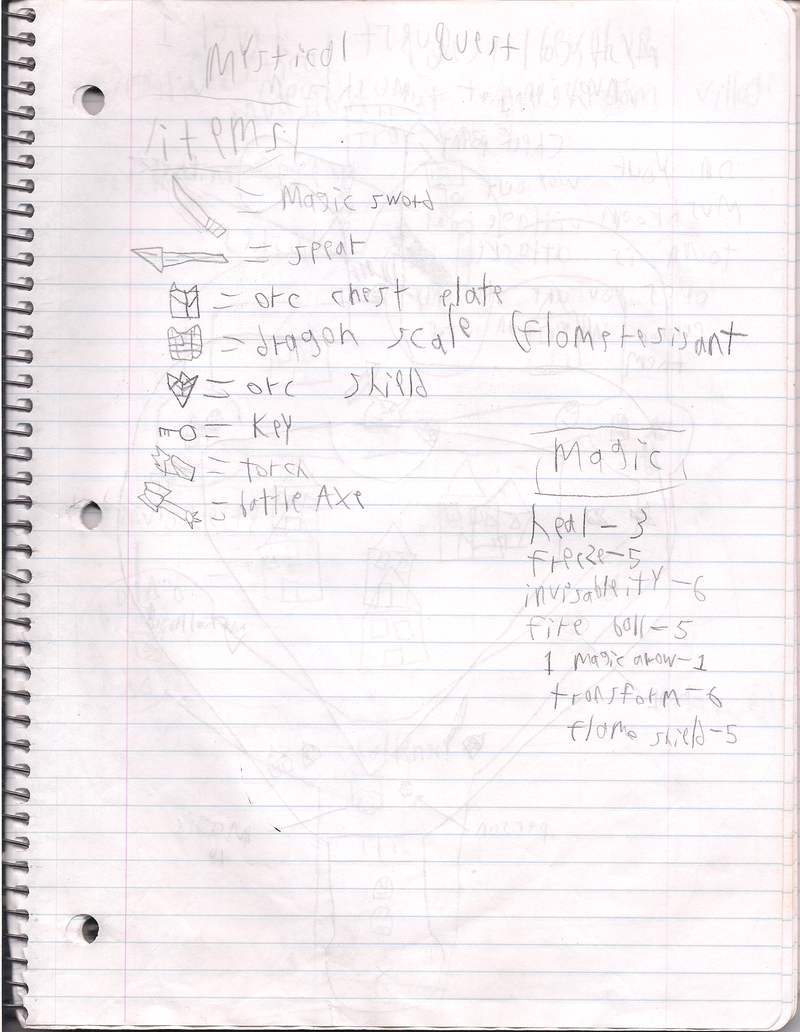 Mystical Quest
items
= Magic sword
= spear
= orc chest plate
= dragon scale (flame resisant
= orc shield
= Key
= torch
= battle Axe
Magic
heal - 3
freeze - 5
invisableity - 6
fire ball - 5
1 magic arow - 1
transform - 6
flame shield - 5